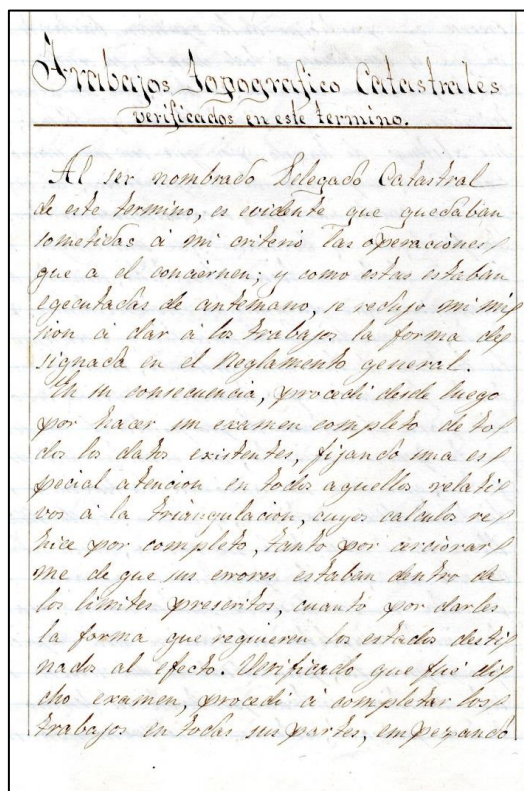 Trabajos topografico Catastrales
verificados en este termino.
Al ser nombrado Delegado Catastral
de este termino, es evidente que quedaban
sometidas á mi criterio las operaciones
que a el conciernen; y como estas estaban
egecutadas de antemano, se redujo mi mi-
sion á dar á los trabajos la forma de-
signada en el Reglamento general.
En su consecuencia, procedi desde luego
por hacer un examen completo de to-
dos los datos existentes, fijando una es-
pecial atencion en todos aquellos relati-
vos á la triangulacion, cuyos calculos re-
hice por completo, tanto por cerciorar-
me de que sus errores estaban dentro de
los limites prescritos, cuanto por darles
la forma que requieren los estados desti-
nados al efecto. Verificado que fué di-
cho examen, procedi á completar los
trabajos en todas sus partes, empezando